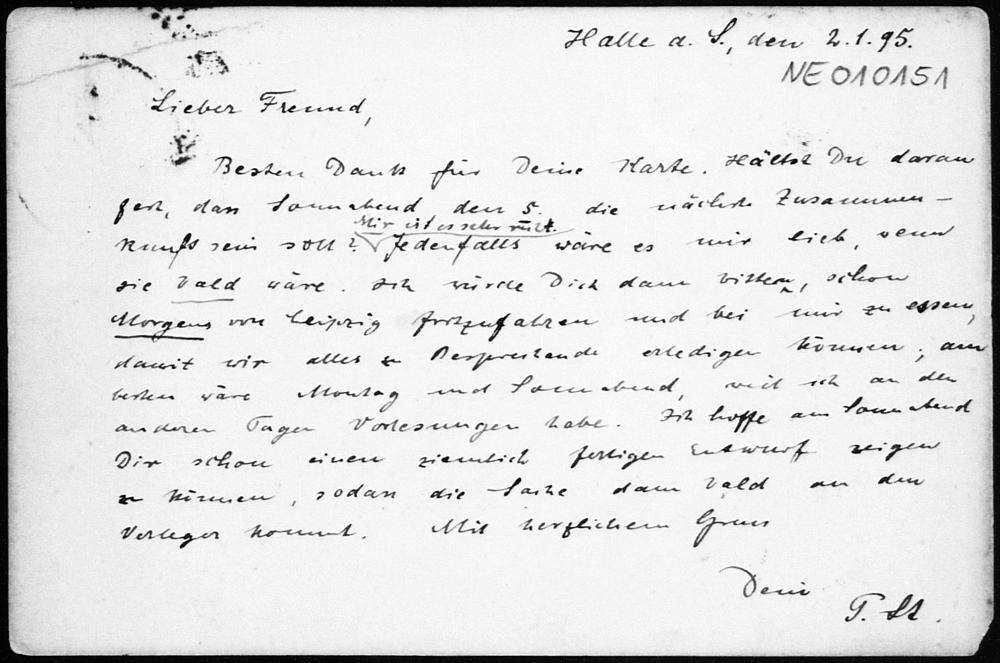 Halle a. S., den 2.1.95.
NE010151
Lieber Freund,
Besten Dank für Deine Karte. Hältst Du daran
fest, dass Sonnabend den 5. die nächste Zusammen-
Mir ist es sehr recht.
kunft sein soll? Jedenfalls wäre es mir lieb, wenn
sie bald wäre. Ich würde Dich dann bitten, schon
Morgens von Leipzig fortzufahren und bei mir zu essen,
damit wir alles zu Besprechende erledigen können; am
besten wäre Montag und Sonnabend, weil ich an den
anderen Tagen Vorlesungen habe. Ich hoffe am Sonnabend
Dir schon einen ziemlich fertigen Entwurf zeigen
zu können, sodass die Sache dann bald an den
Verleger kommt. Mit herzlichem Gruss
Dein
T. St.